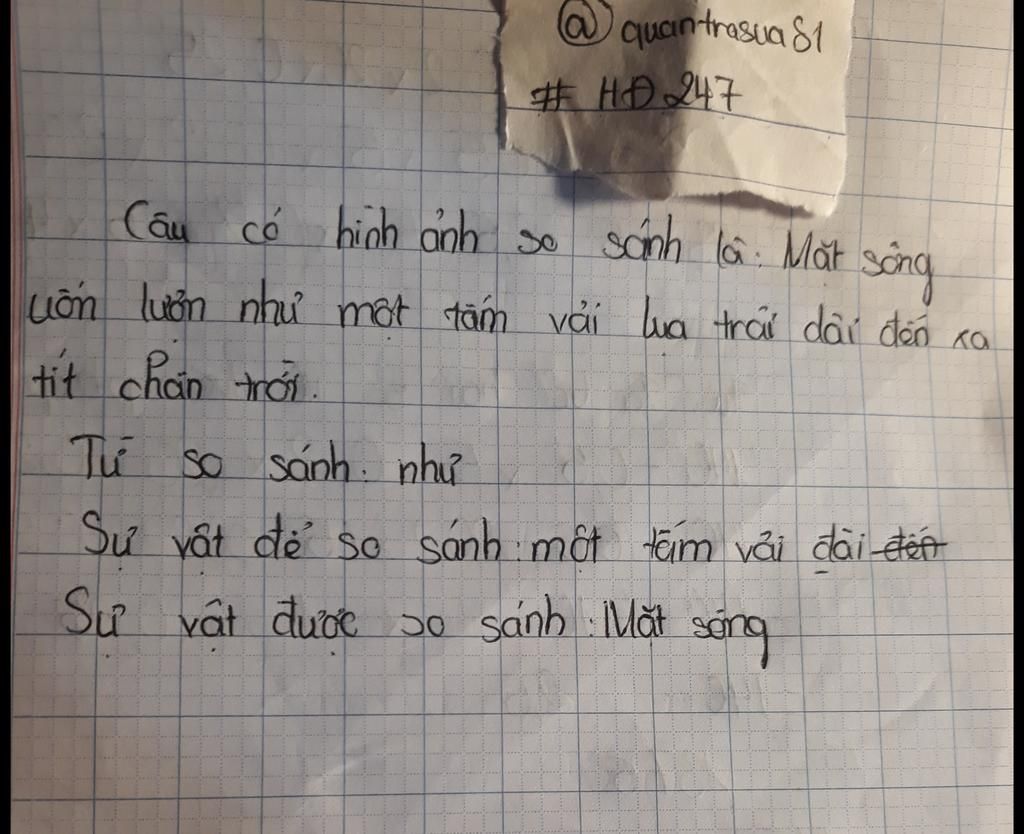 @ quantrasua81
# HĐ 247
Câu có hình ảnh so sánh là: Mặt sông
uốn lượn như một tấm vải lụa trải dài đến xa
tít chân trời.
Từ so sánh: như
Sự vật để so sánh: một tấm vải dài đến
Sự vật được so sánh: Mặt sông